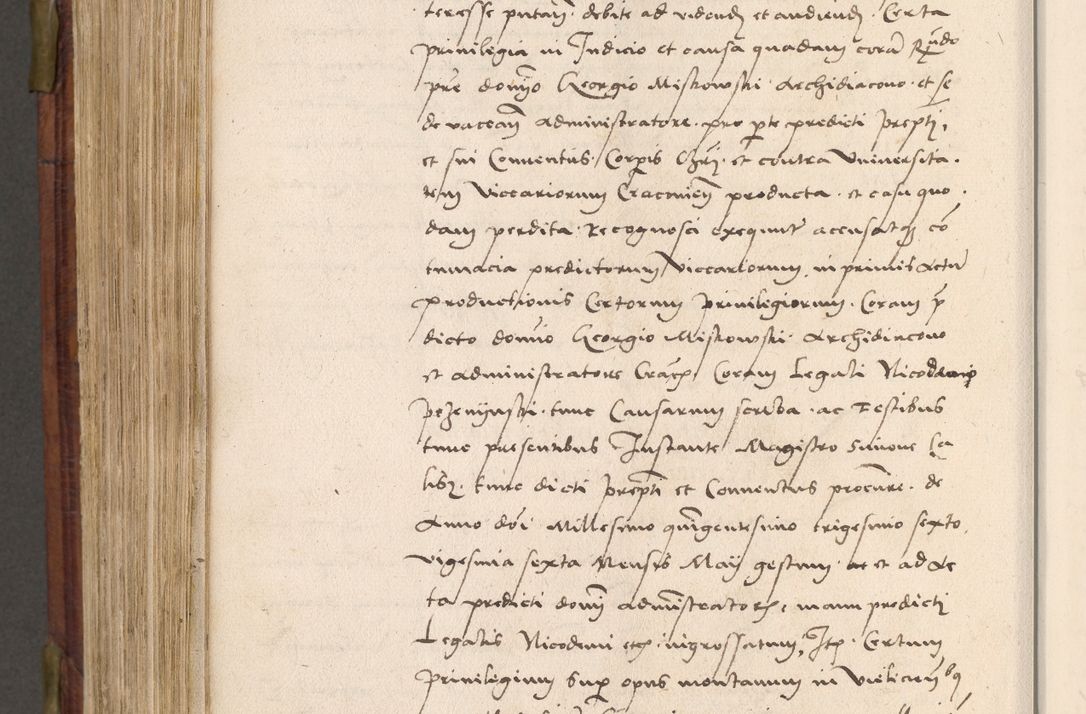 teresse putan̄ debite ad videnđ et audienđ Certa
privilegia in Judicio et causa quadam corā Rn̄do
pr̄e domīo Georgio Miskowski Archidiacono et se
de vacean̄ Administratore pro pte predicti prep̄ti,
et sui Conventus Corpis Chri et contra Universita
tem Viccariorum Cracovien̄ producta et casu quo
dam perdita Recognosci exequunt̄ accusatq cō
tumacia predictorum Viccariorum, in primis Actū
productionis Certorum privilegiorum Coram p̄
dicto domīo Georgio Miskowski Archidiacono
et Administratore Crac Coram Legali Nicodemo
tunc Causarum scriba ac Testibus
tunc presentibus Instante Magistro Simone
tunc dicti prep̄ti et Conventus procure de
Anno dōi Millesimo quingentesimo trigesimo sexto
vigesima sexta Mensis Maÿ gestum ac et ad Ac
ta predicti domī administratoris, manu predicti
Legalis Nicodemi etc ingrossatum, Itē Certum
Privilegium Sup opus montanum in Vielicien̄